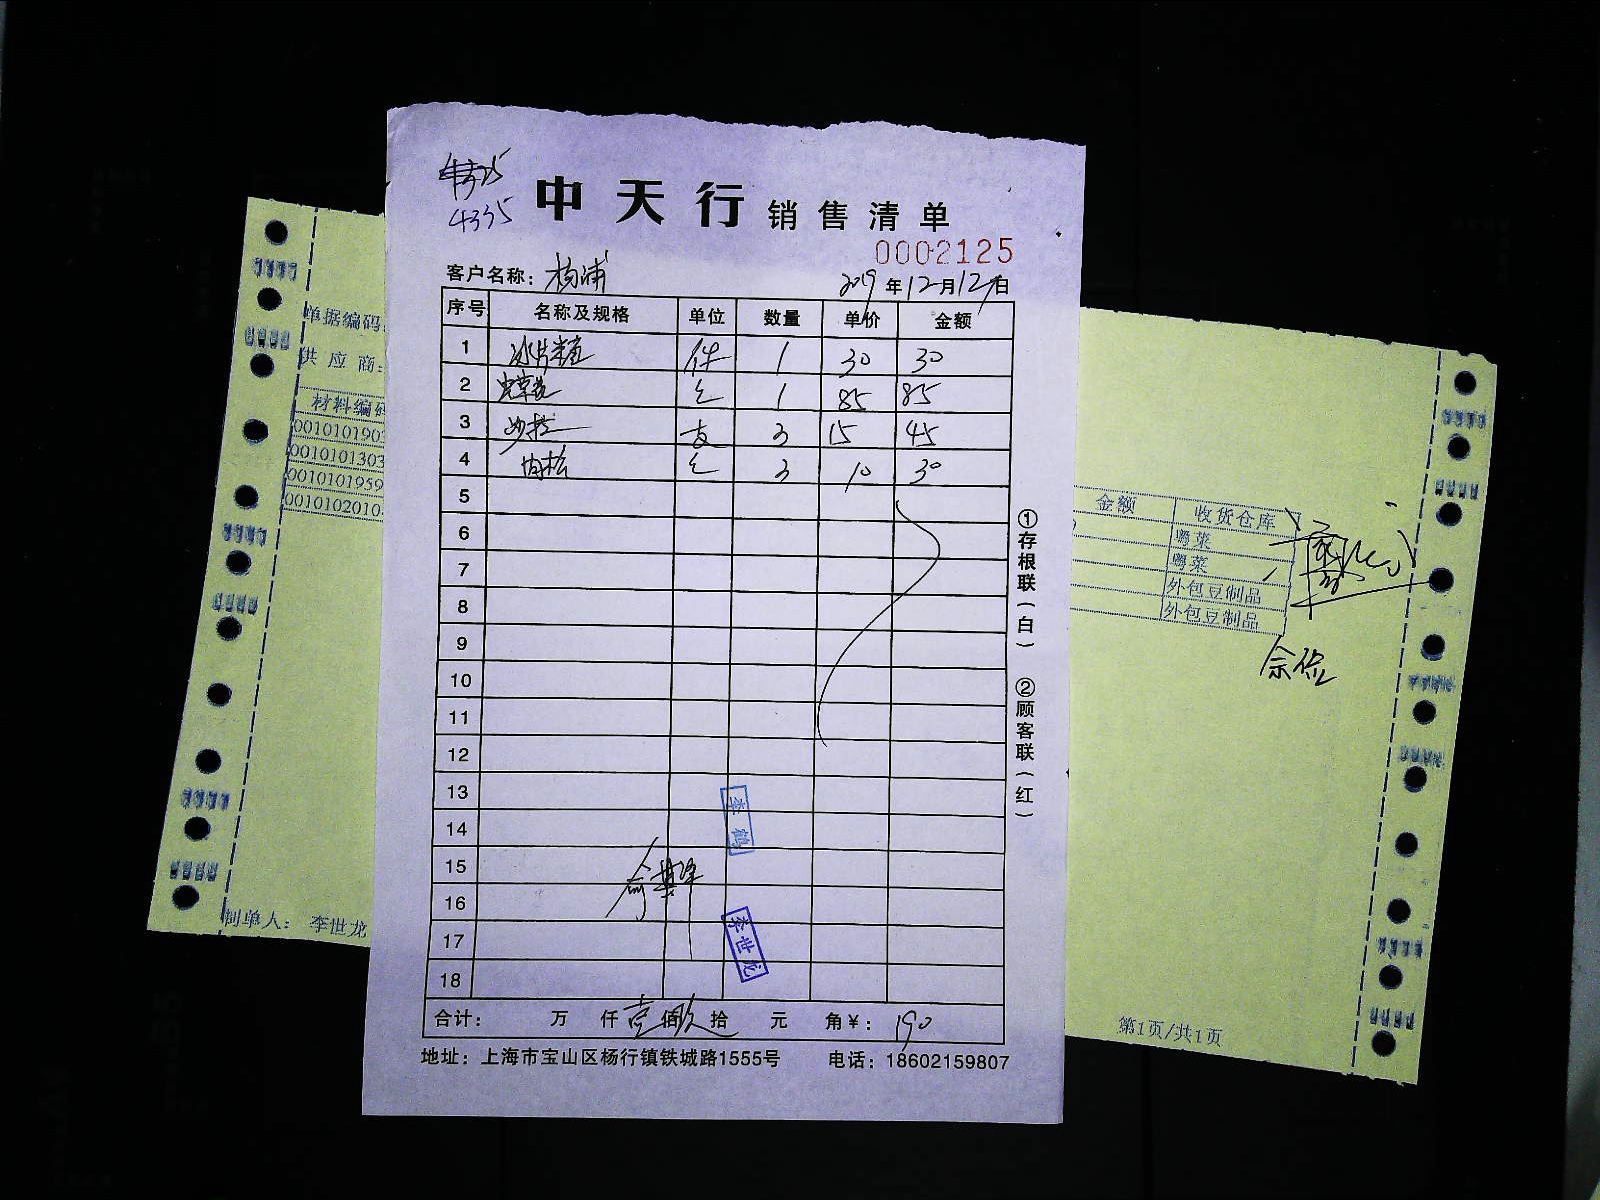 4335
中天行 销售清单
0002125
客户名称：杨浦 2019年12月12日
序号 名称及规格 单位 数量 单价 金额
1 冰片糖 件 1 30 30
2 虫草花 1 85 85
3 沙拉 支 3 15 45
4 肉松 3 10 30
5
6
7
8
9
10
11
12
13
14
15
16
17
18
李鹤
李世龙
合计： 万 仟 壹 佰 玖 拾 元 角￥：190
地址：上海市宝山区杨行镇铁城路1555号 电话：18602159807
①存根联（白） ②顾客联（红）
单据编码：
供应商：
材料编码
0010101903
0010101303
0010101959
0010102010
制单人： 李世龙
金额 收货仓库
粤菜
粤菜
外包豆制品
外包豆制品
第1页/共1页